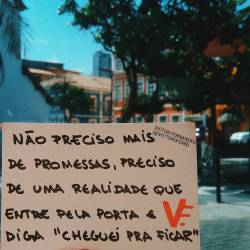 VICTOR FERNANDES
@VICTORDFERRO
NÃO PRECISO MAIS
DE PROMESSAS, PRECISO
DE UMA REALIDADE QUE
ENTRE PELA PORTA E
DIGA "CHEGUEI PRA FICAR"
VF